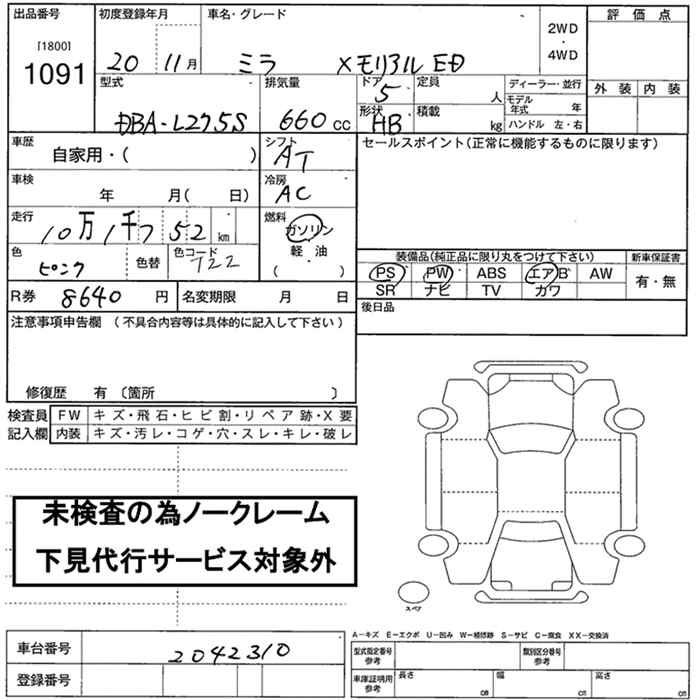 出品番号
[1800]
1091
初度登録年月
20 11月
車名・グレード
ミラ XメモリアルED
2WD
・
4WD
評価点
外装 内装
型式
DBA-L275S
排気量
660 CC
ドア
5
形状
HB
定員
人
積載
kg
ディーラー・並行
モデル年式 年
ハンドル 左・右
車歴
自家用・( )
シフト
AT
セールスポイント(正常に機能するものに限ります)
車検
年 月( 日)
冷房
AC
走行
10万1千752 km
燃料
ガソリン
軽・油
( )
色
ピンク
色替
色コード
T22
装備品(純正品に限り丸をつけて下さい)
新車保証書
PS PW ABS エアB AW
SR ナビ TV カワ
有・無
R券 8640 円
名変期限 月 日
後日品
注意事項申告欄 (不具合内容等は具体的に記入して下さい)
修復歴 有 〔箇所 〕
検査員記入欄
FW キズ・飛石・ヒビ割・リペア跡・X要
内装 キズ・汚レ・コゲ・穴・スレ・キレ・破レ
未検査の為ノークレーム
下見代行サービス対象外
スペア
車台番号
2042310
登録番号
A-キズ E-エクボ U-凹み W-補修跡 S-サビ C-腐食 XX-交換済
型式指定番号参考
類別区分番号参考
車庫証明用参考
長さ cm
幅 cm
高さ cm